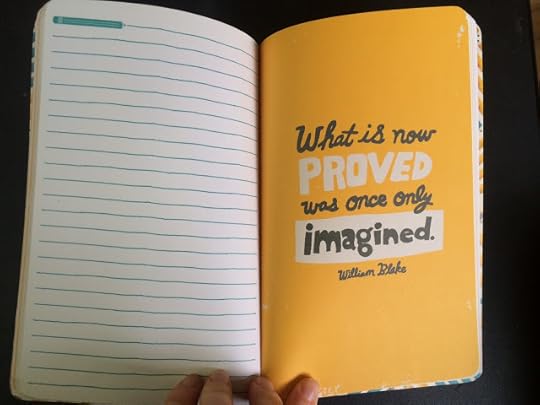 What is now
PROVED
was once only
imagined.
William Blake